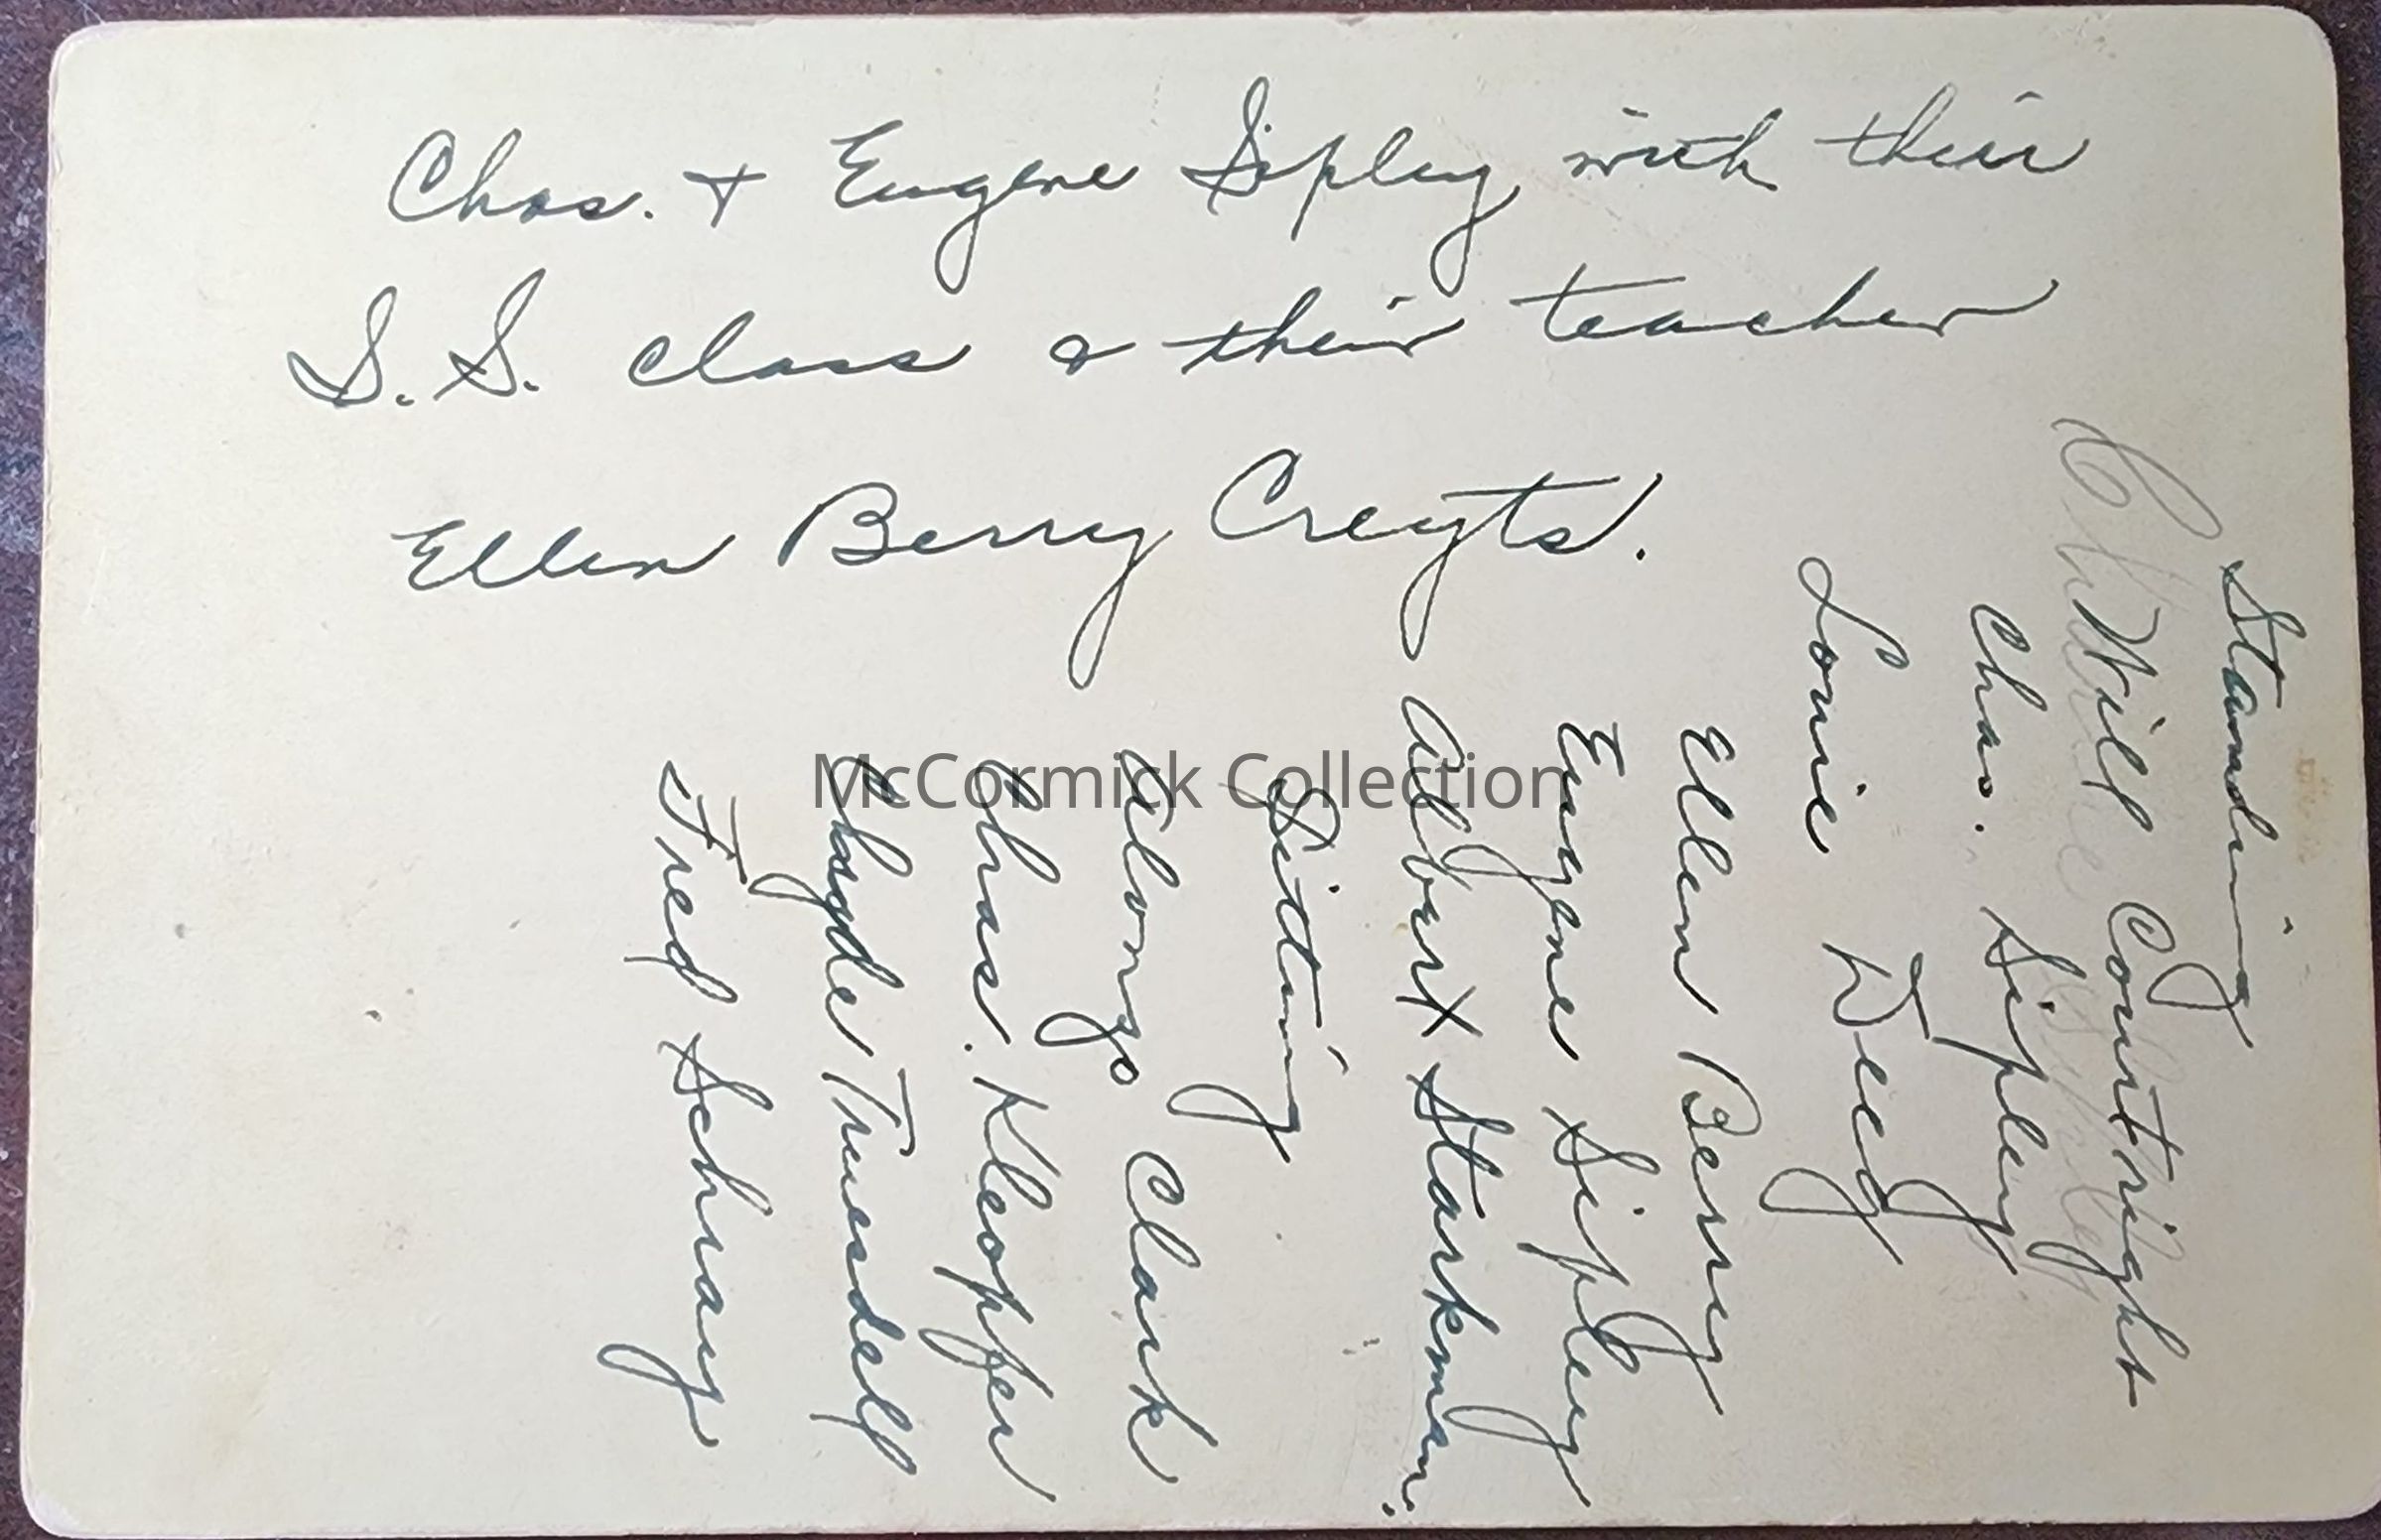 Chas. + Eugene Sipley with their
S. S. class & their teacher
Ellen Berry Creyts.
Standing
Will Countright
Chas. Sipley
Lonie Deeg
Ellen Berry
Eugene Sipley
Albert Starkman.
Sitting
Alonzo Clark
Chas. Kleopfer
Claude Truesdell
Fred Schray
McCormick Collection